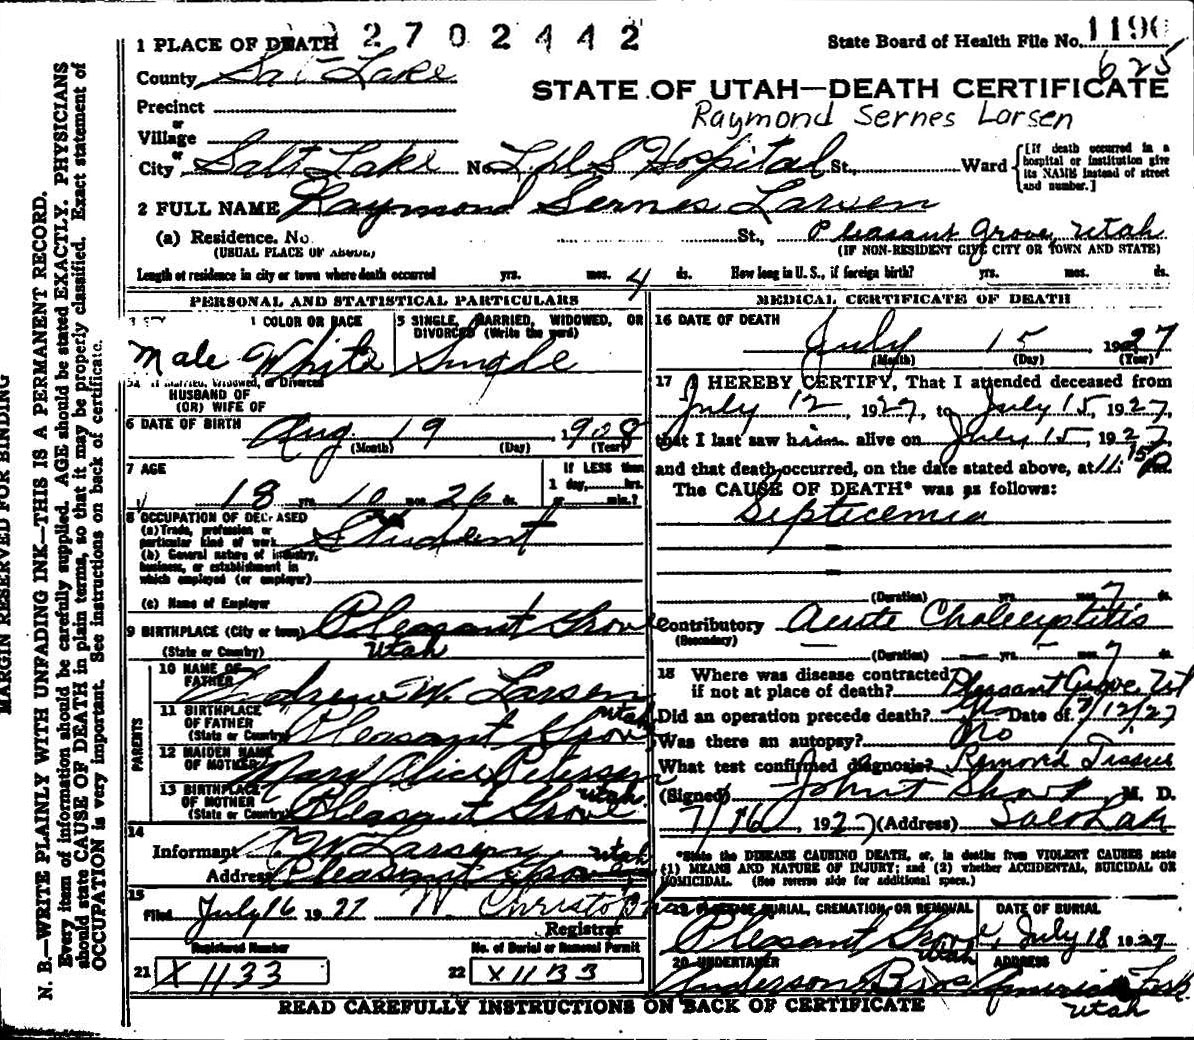 2702442
State Board of Health File No. 1190
625
1 PLACE OF DEATH
County Salt Lake
STATE OF UTAH—DEATH CERTIFICATE
Precinct
or
Village
Raymond Sernes Larsen
or
City Salt Lake No. L.D.S Hospital St., Ward
[If death occurred in a hospital or institution give its NAME instead of street and number.]
2 FULL NAME Raymond Sernes Larsen
(a) Residence. No. St., Pleasant Grove, Utah
(USUAL PLACE OF ABODE) (IF NON-RESIDENT GIVE CITY OR TOWN AND STATE)
Length of residence in city or town where death occurred yrs. mos. 4 ds. How long in U. S., if foreign birth? yrs. mos. ds.
PERSONAL AND STATISTICAL PARTICULARS
3 SEX
4 COLOR OR RACE
5 SINGLE, MARRIED, WIDOWED, OR DIVORCED (Write the word)
Male White Single
5a If Married, Widowed, or Divorced
HUSBAND OF
(OR) WIFE OF
6 DATE OF BIRTH Aug 19 1908
(Month) (Day) (Year)
7 AGE
If LESS than
1 day, hrs.
or min.?
18 yrs. 10 mos. 26 ds.
8 OCCUPATION OF DECEASED
(a) Trade, profession or
particular kind of work Student
(b) General nature of industry,
business, or establishment in
which employed (or employer)
(c) Name of Employer
9 BIRTHPLACE (City or town) Pleasant Grove
(State or Country) Utah
PARENTS
10 NAME OF
FATHER Andrew W. Larsen
11 BIRTHPLACE
OF FATHER
(State or Country) Pleasant Grove Utah
12 MAIDEN NAME
OF MOTHER Mary Alice Peterson
13 BIRTHPLACE
OF MOTHER
(State or Country) Pleasant Grove Utah
14
Informant A W Larsen
Address Pleasant Grove Utah
15
Filed July 16 1927 W Christo
Registrar
Registered Number
No. of Burial or Removal Permit
21 X 1133
22 X 1133
MEDICAL CERTIFICATE OF DEATH
16 DATE OF DEATH
July 15 1927
(Month) (Day) (Year)
17 I HEREBY CERTIFY, That I attended deceased from
July 12, 1927, to July 15, 1927,
that I last saw him alive on July 15, 1927,
and that death occurred, on the date stated above, at 11:15 P m.
The CAUSE OF DEATH* was as follows:
Septicemia
(Duration) yrs. mos. 7 ds.
Contributory Acute Cholecystitis
(Secondary)
(Duration) — yrs. — mos. 7 ds.
18 Where was disease contracted
if not at place of death? Pleasant Grove Ut
Did an operation precede death? Yes Date of 7/12/27
Was there an autopsy? No
What test confirmed diagnosis? Removed Tissue
(Signed) John T Sharp M. D.
7/16, 1927 (Address) Salt Lake
*State the DISEASE CAUSING DEATH, or, in deaths from VIOLENT CAUSES state
(1) MEANS AND NATURE OF INJURY; and (2) whether ACCIDENTAL, SUICIDAL OR
HOMICIDAL. (See reverse side for additional space.)
19 PLACE OF BURIAL, CREMATION, OR REMOVAL
DATE OF BURIAL
Pleasant Grove, Utah July 18 1927
20 UNDERTAKER
ADDRESS
Anderson Bros American Fork
Utah
READ CAREFULLY INSTRUCTIONS ON BACK OF CERTIFICATE
MARGIN RESERVED FOR BINDING
N. B.—WRITE PLAINLY WITH UNFADING INK—THIS IS A PERMANENT RECORD.
Every item of information should be carefully supplied. AGE should be stated EXACTLY. PHYSICIANS
should state CAUSE OF DEATH in plain terms, so that it may be properly classified. Exact statement of
OCCUPATION is very important. See instructions on back of certificate.